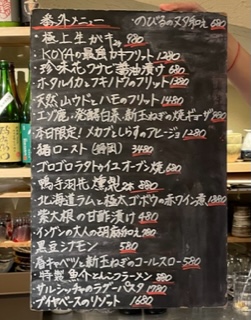 番外メニュー ・のびるのヌタ和え 680
・極上生がき 980
・KOYAの最強カキフリット 1280
・珍味花ワサビ醤油漬け 680
・ホタルイカとフキノトウのフリット 1380
・天然山ウドとハモのフリット 1480
・エゾ鹿・発酵白菜・新玉ねぎの焼ギョーザ 980
・本日限定!メカブとしらすのアヒージョ 1280
ロースト 3480
・ゴロゴロラタトゥイユオーブン焼 680
・鴨手羽先燻製 2本 380
・北海道ラムと極太ゴボウの赤ワイン煮 1880
・紫大根の甘酢漬け 480
・インゲンの大人の胡麻和え
・黒豆シナモン 580
・春キャベツと新玉ねぎのコールスロー 580
・特製魚介とんこつラーメン
・サルシッチャのラグーパスタ 1780
・ブイヤベースのリゾット 1680